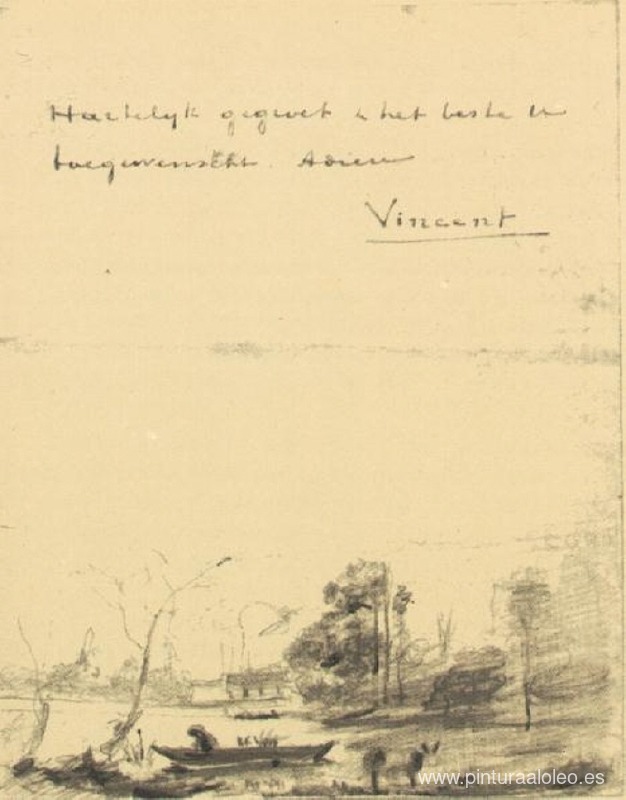 Hartelyk gegroet & het beste U
toegewenscht. Adieu
Vincent
www.pinturaaloleo.es